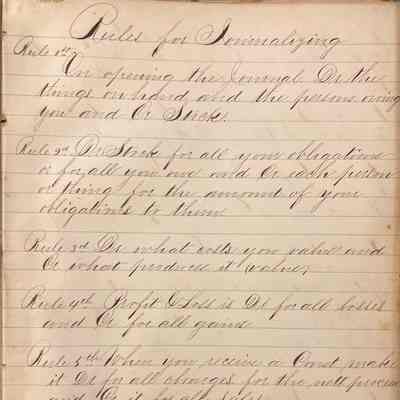 Rules for Journalizing
Rule 1st
On opening the Journal Dr the
things on hand and the persons owing
you and Cr Stock.
Rule 2d Dr Stock for all your obligations
or for all you owe and Cr each person
or thing for the amount of your
obligations to them
Rule 3d Dr what costs you value and
Cr what produces it value,
Rule 4th Profit & Loss is Dr for all losses
and Cr for all gains
Rule 5th When you receive a Const make
it Dr for all charges for the nett proceeds
and Cr it for all Sales